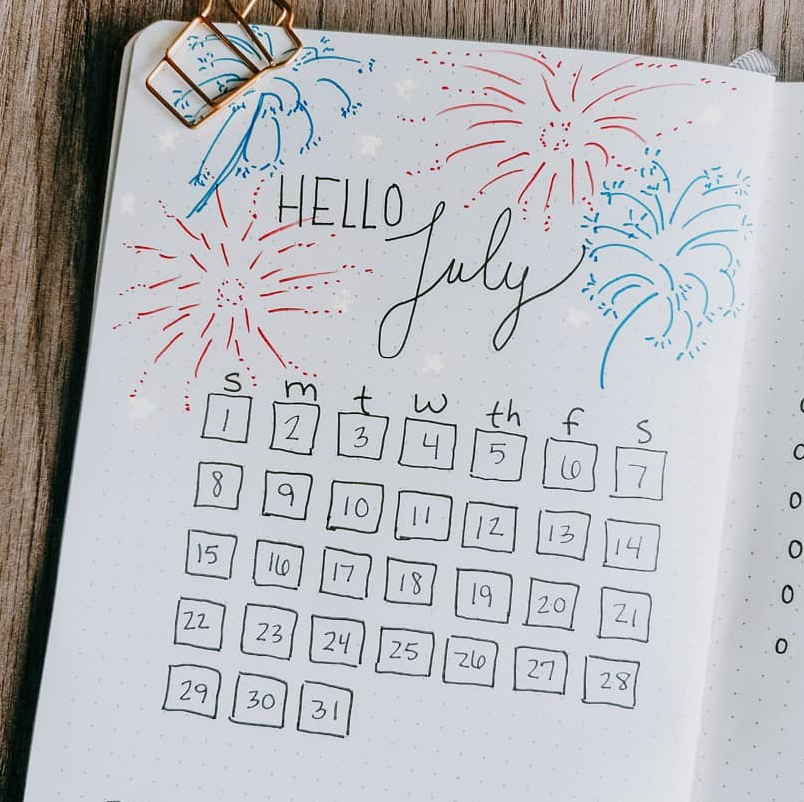 HELLO
July
s m t w th f s
1 2 3 4 5 6 7
8 9 10 11 12 13 14
15 16 17 18 19 20 21
22 23 24 25 26 27 28
29 30 31